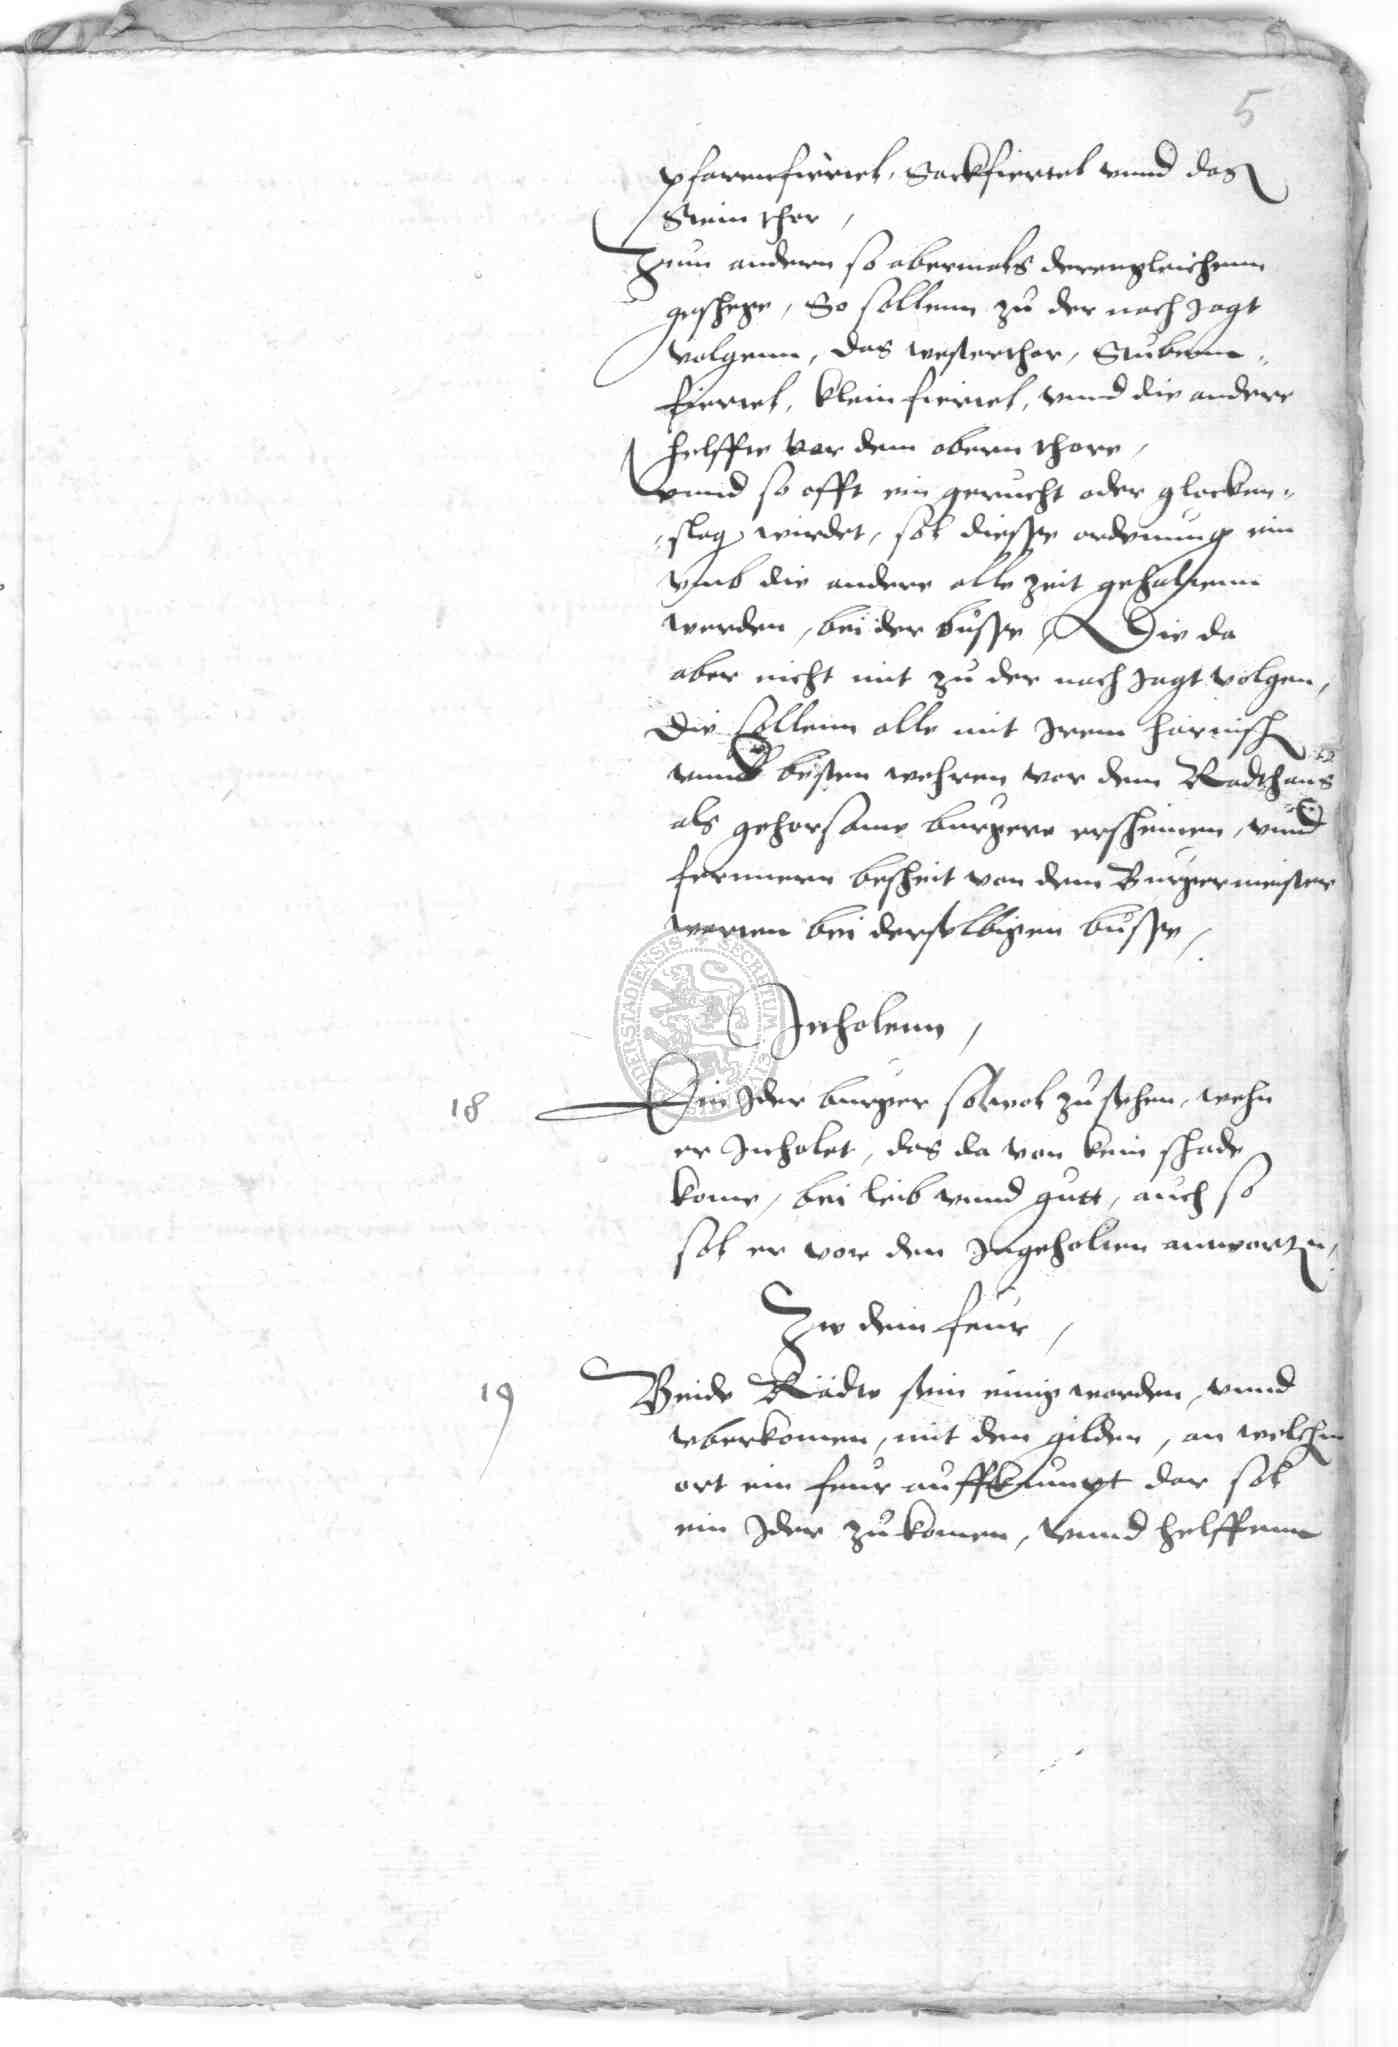 5
pfarrenfiertel, Sackfiertel vnnd das
Stein thor,
Zum andern so abermals derengleichenn
geschege, So sollenn zu der nach Jagt
volgenn, das westerthor, Stubenn-
fiertel, klein fiertel, vnnd die andere
helffte vor dem obern thore,
vnnd so offt ein gerucht oder glocken-
slag wirdet, sol diesse ordenung ein
vmb die andere alle zeit gehaltenn
werden, bei der busse, Die da
aber nicht mit zu der nach Jagt volgen,
die sollenn alle mit Irem harnisch
vnnd besten wehren vor dem Radthaus
als gehorsame burgere erscheinen, vnnd
fernnern bescheit von dem Burgermeister
warten bei derselbigen busse,
SECRETUM
Inholenn,
18
Ein Jder burger sol wol zu sehen, wehn
er Inholet, das da von kein schade
kome, bei leib vnnd gutt, auch so
sol er vor den Ingeholten antwortn,
Zw dem feur,
19
Beide Rädte sein einig worden, vnnd
vberkomen, mit den gilden, an welchm
ort ein feur auffkumpt dar sol
ein Jder zu komen, vnnd helffenn